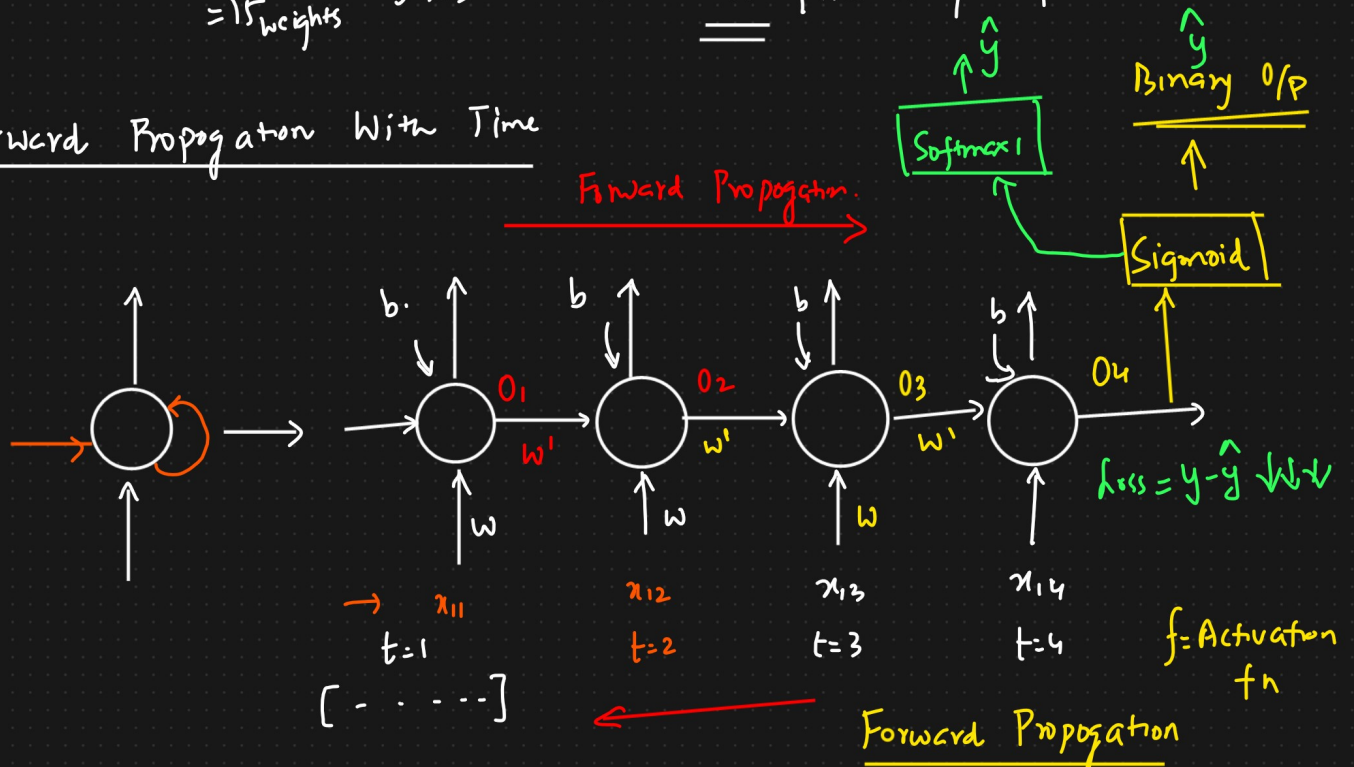 =15 weights
ward Propogation With Time
Forward Propogation.
ŷ
Softmax1
ŷ
Binary O/P
Sigmoid
b.
b
b
b
O1
O2
O3
O4
W'
W'
W'
W
W
W
Loss = y-ŷ ↓↓↓
→ x11
x12
x13
x14
t=1
t=2
t=3
t=4
[- . - - - -]
f=Activation
fn
Forward Propogation